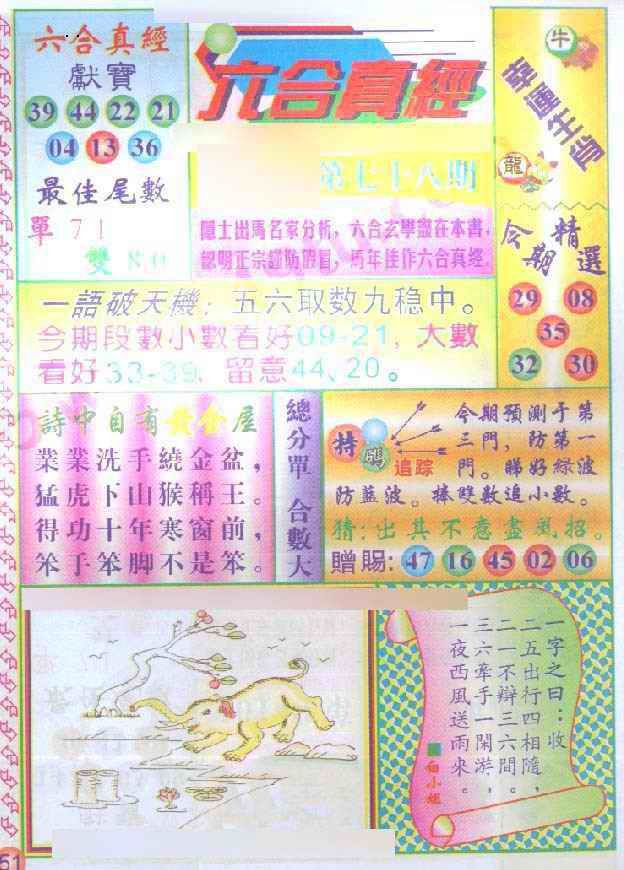 六合真經
獻寶
39 44 22 21
04 13 36
最佳尾數
單 71
雙
六合真經
第七十八期
隱士出馬名家分析，六合玄學盡在本書，
認明正宗謹防假冒，馬年佳作六合真經
牛
幸運生肖
龍
今期精選
29 08
35
32 30
一語破天機：五六取数九稳中。
今期段數小數看好09-21，大數
看好33-39、留意44、20。
詩中自有黃金屋
業業洗手繞金盆，
猛虎下山猴稱王。
得功十年寒窗前，
笨手笨脚不是笨。
總分單 合數大
特
追踪
今期預測于第
三門，防第一
門。睇好綠波
防藍波。捧雙數追小數。
猜：出其不意盡風招。
贈賜：47 16 45 02 06
一字之曰：收
二五出行四相隨，
二一不辦三六間。
三六牽手一閑游，
一夜西風送雨來。
白小姐
51